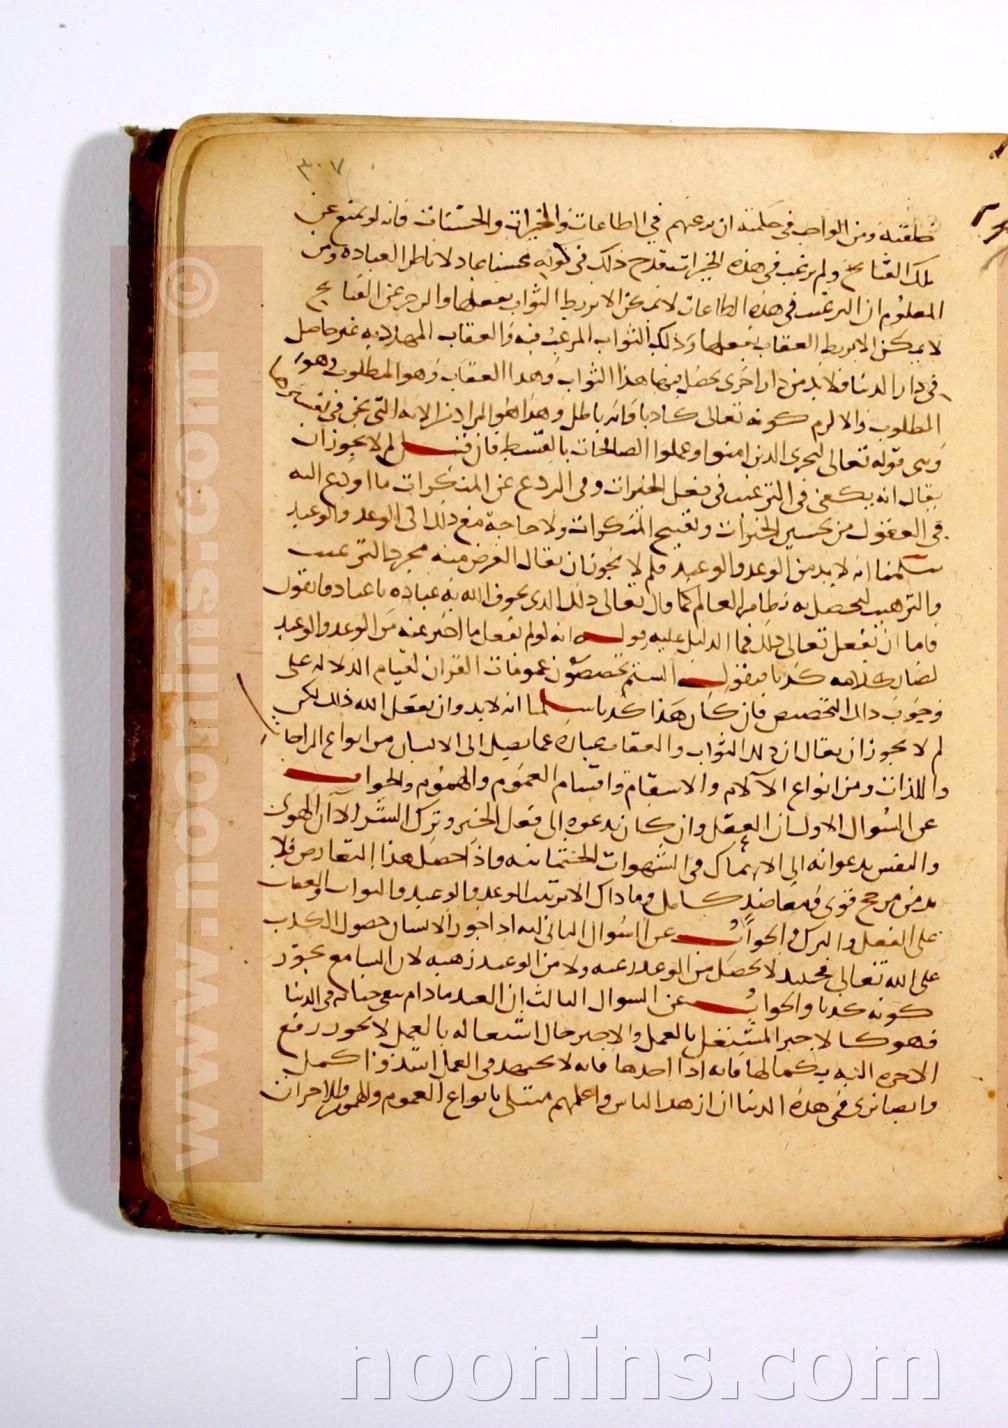 ٣٠٧
خلقته ومن الواجب في حكمته ان يرغبهم في الطاعات والخيرات والحسنات فانه لو لم يمنع عن
تلك القبائح ولم يرغب في هذه الخيرات قدح ذلك في كونه محسنا عادلا ناظرا لعباده ومن
المعلوم ان الترغيب في هذه الطاعات لا يمكن الا بربط الثواب بفعلها والزجر عن القبائح
لا يمكن الا بربط العقاب بفعلها وذلك الثواب المرغب فيه والعقاب المهدد به غير حاصل
في دار الدنيا فلا بد من دار اخرى يحصل فيها هذا الثواب وهذا العقاب وهو المطلوب وهو
المطلوب والا لزم كونه تعالى كاذبا وانه باطل وهذا هو المراد من الاية التي نحن في تفسيرها
وهي قوله تعالى ليجزي الذين امنوا وعملوا الصالحات بالقسط فان قيل لم لا يجوز ان
يقال انه يكفي في الترغيب في فعل الخيرات وفي الردع عن المنكرات ما اودع الله
في العقول من تحسين الخيرات وتقبيح المنكرات ولا حاجة مع ذلك الى الوعد والوعيد
سلمنا انه لا بد من الوعد والوعيد فلم لا يجوز ان يقال الغرض منه مجرد الترغيب
والترهيب ليحصل به نظام العالم كما قال تعالى ذلك الذي يخوف الله به عباده يا عباد فاتقون
فاما ان يفعل تعالى ذلك فما الدليل عليه قوله انه لو لم يفعل ما اخبر عنه من الوعد والوعيد
لصار كلامه كذبا فنقول الستم تخصصون عمومات القران لقيام الدلالة على
وجوب ذلك التخصيص فان كان هذا كذبا سلمنا انه لا بد وان يفعل الله ذلك لكن
لم لا يجوز ان يقال ان ذلك الثواب والعقاب عبارة عما يصل الى الانسان من انواع الراحات
واللذات ومن انواع الالام والاسقام واقسام الغموم والهموم والجواب
عن السوال الاول ان العقل وان كان يدعوه الى فعل الخير وترك الشر الا ان الهوى
والنفس يدعوانه الى الانهماك في الشهوات الجسمانية واذا حصل هذا التعارض فلا
بد من مرجح قوي ومعاضد كامل وما ذاك الا ترتيب الوعد والوعيد والثواب والعقاب
على الفعل والترك والجواب عن السوال الثاني انه اذا جوز الانسان حصول الكذب
على الله تعالى فحينئذ لا يحصل من الوعد رغبة ولا من الوعيد رهبة لان السامع يجوز
كونه كذبا والجواب عن السوال الثالث ان العبد ما دام يبقى حياته في الدنيا
فهو كالاجير المشتغل بالعمل والاجير حال اشتغاله بالعمل لا يجوز دفع
الاجرة اليه بكمالها فانه اذا اخذها فانه لا يجتهد في العمل
وايضا نرى في هذه الدنيا ان ازهد الناس واعلمهم مبتلى بانواع الغموم والهموم والاحزان
www.noonins.com ©
noonins.com